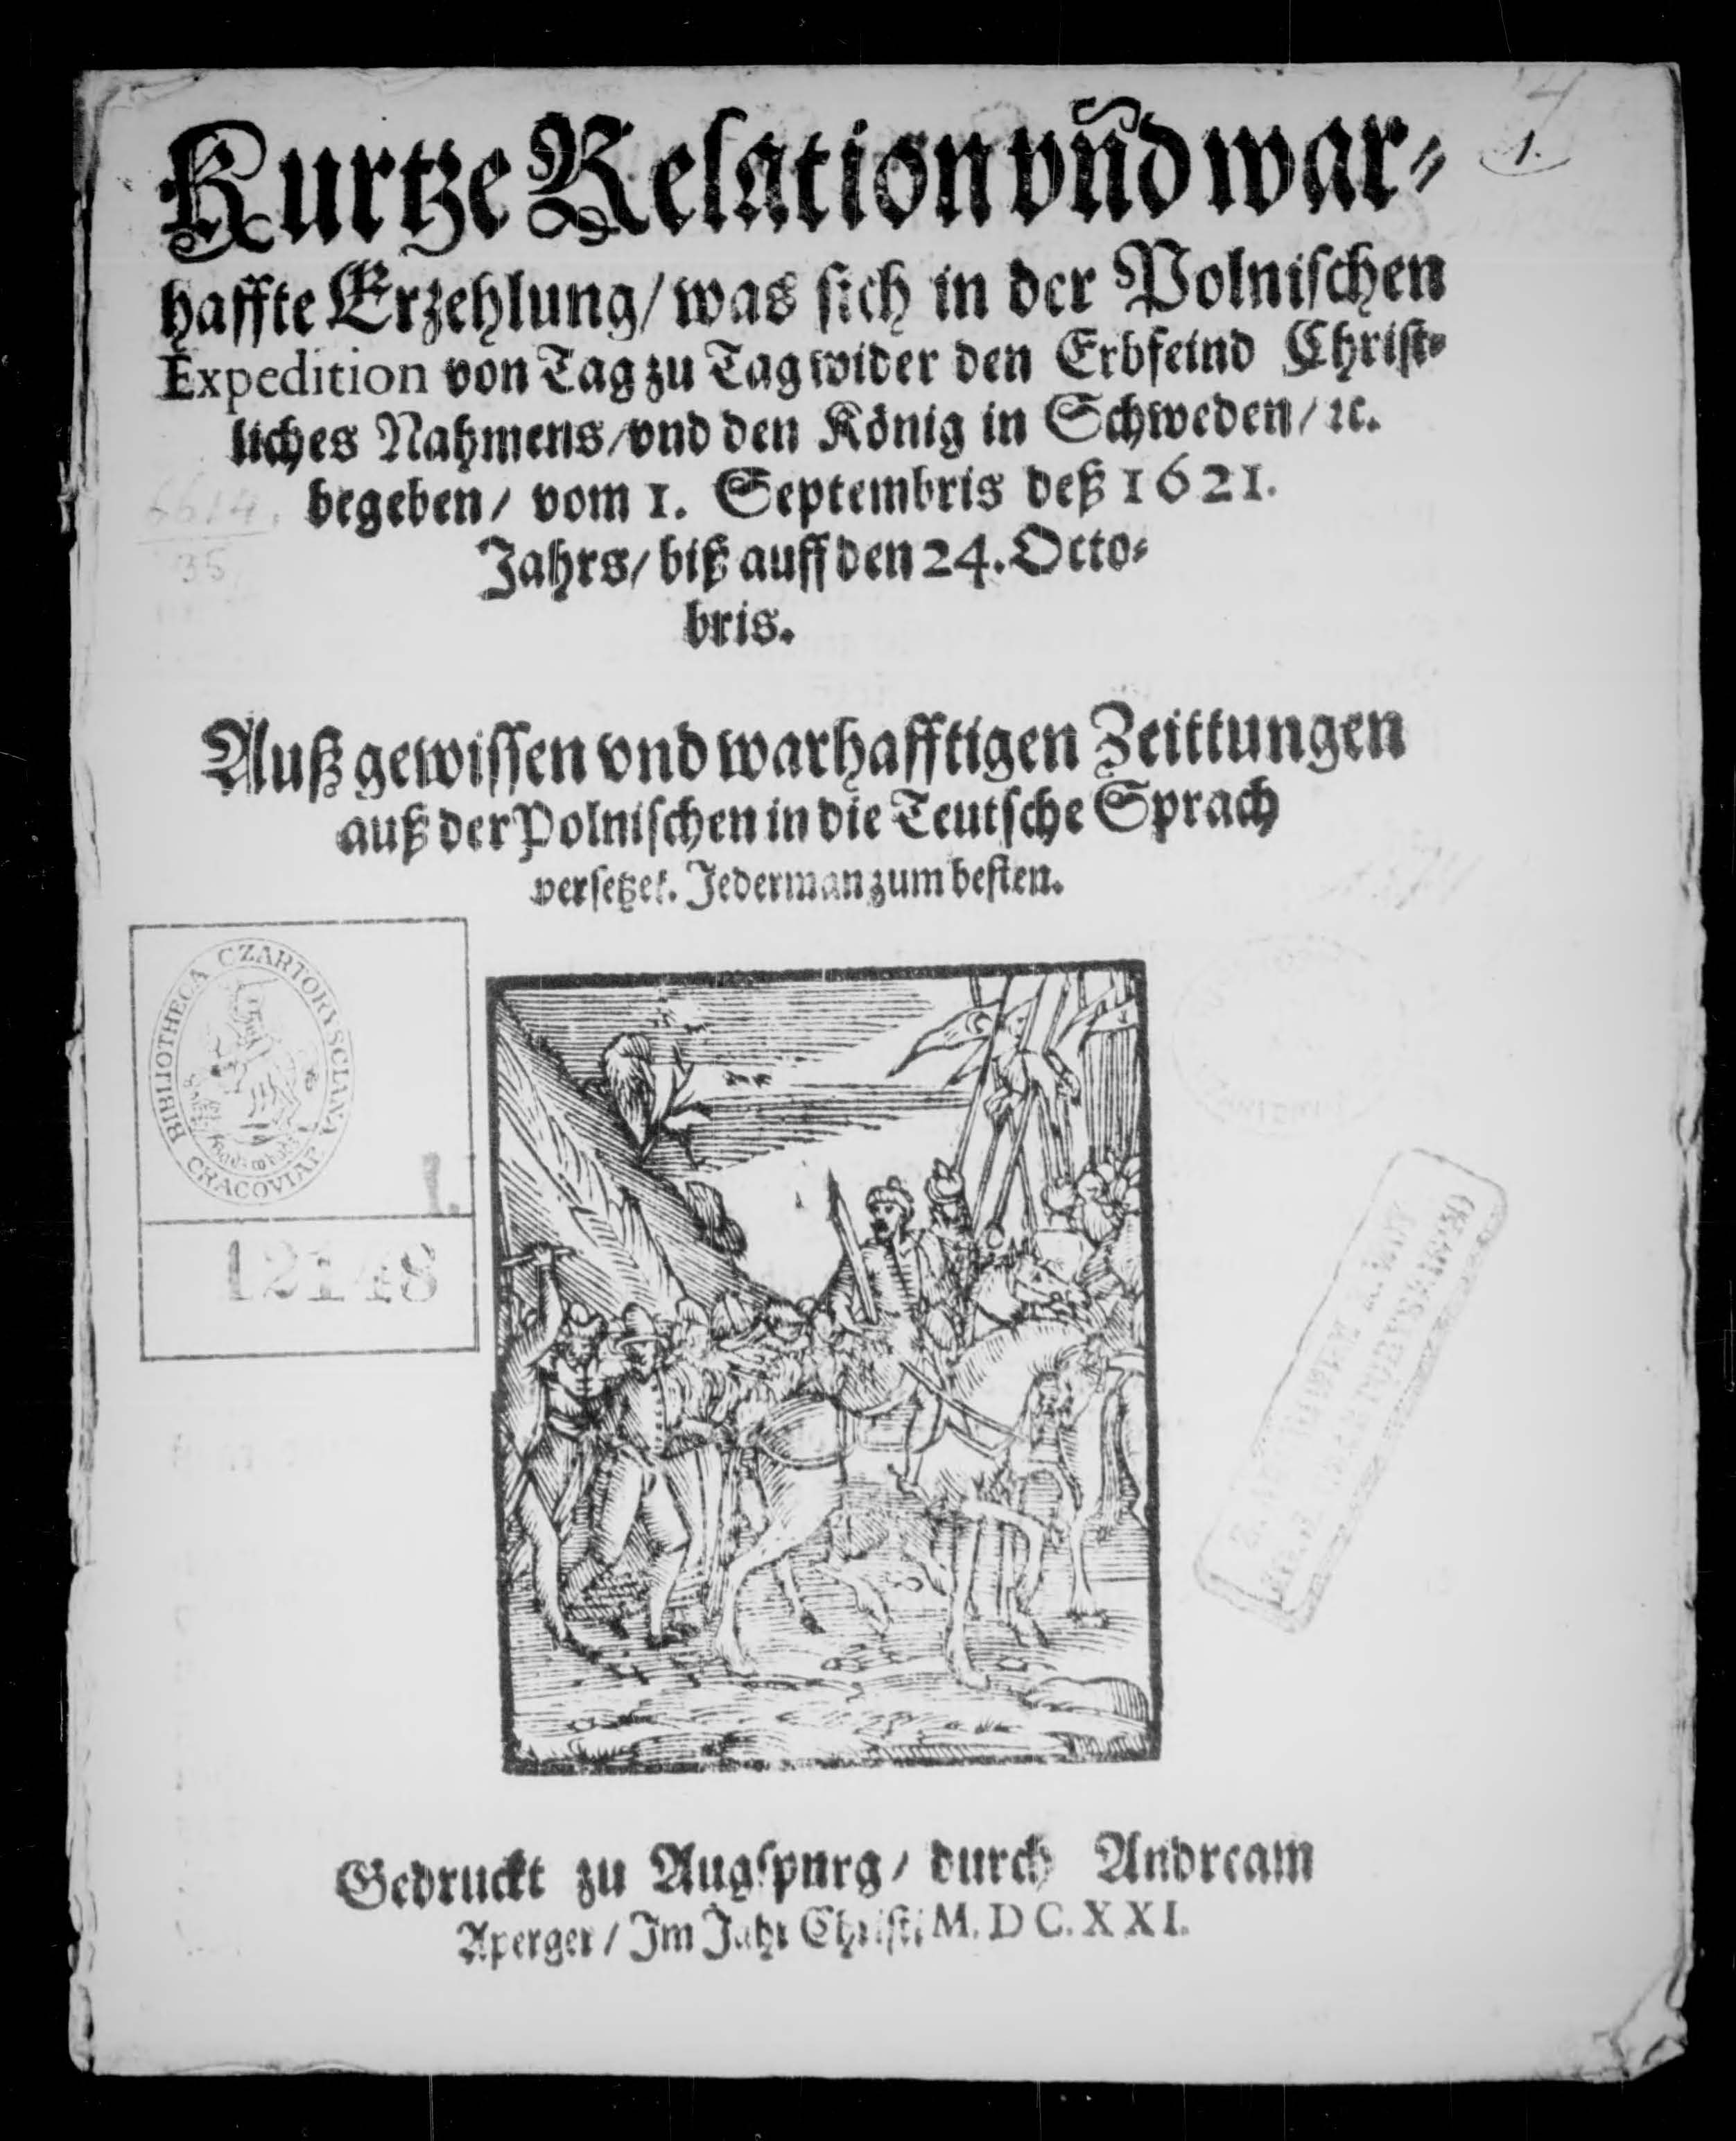 4
1.
Kurtze Relation vñd war⸗
haffte Erzehlung/ was sich in der Polnischen
Expedition von Tag zu Tag wider den Erbfeind Christ⸗
liches Nahmens/ vnd den König in Schweden/ ꝛc.
begeben/ vom 1. Septembris deß 1621.
Jahrs/ biß auff den 24. Octo⸗
bris.
6614.
35
Auß gewissen vnd warhafftigen Zeittungen
auß der Polnischen in die Teutsche Sprach
versetzet. Jederman zum besten.
BIBLIOTHECA CZARTORYSCIANA
CRACOVIAE
I.
12148
Gedruckt zu Augspurg/ durch Andream
Aperger/ Im Jahr Christi M. DC. XXI.